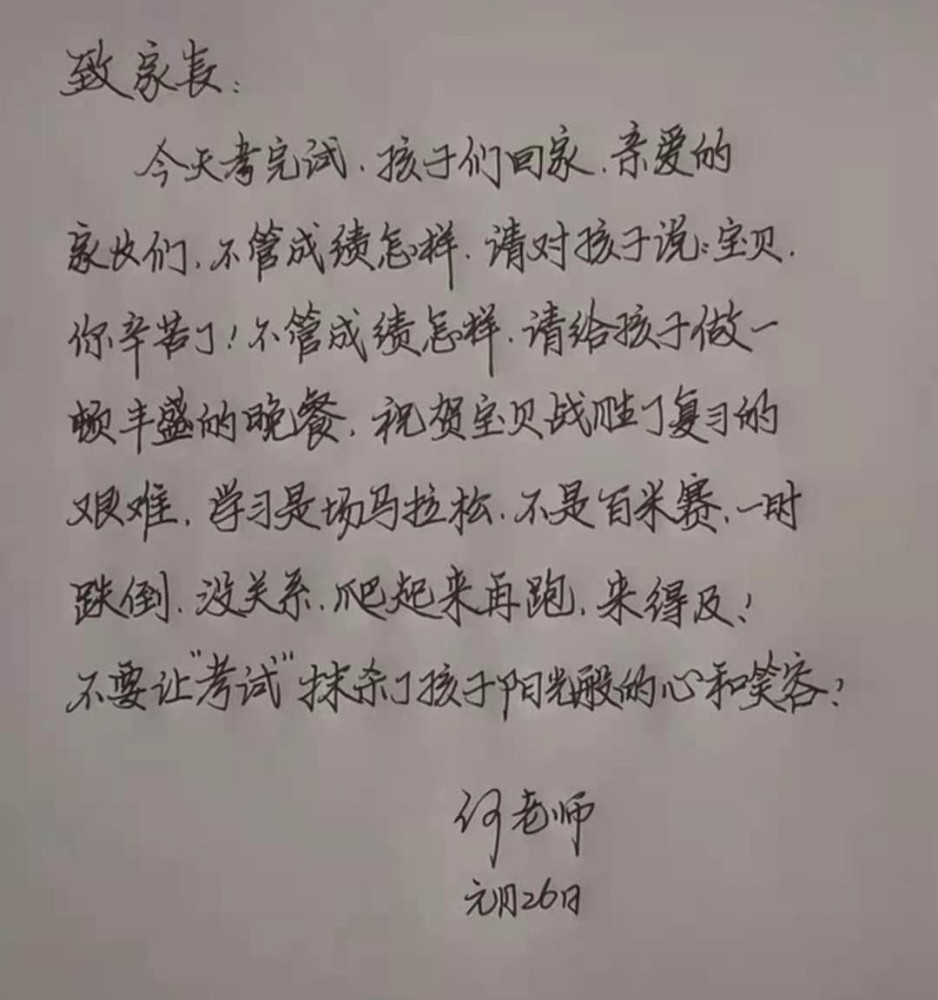 致家长:
今天考完试.孩子们回家.亲爱的
家长们,不管成绩怎样.请对孩子说:宝贝.
你辛苦了!不管成绩怎样.请给孩子做一
顿丰盛的晚餐,祝贺宝贝战胜了复习的
艰难,学习是场马拉松.不是百米赛,一时
跌倒.没关系.爬起来再跑,来得及!
不要让"考试"抹杀了孩子阳光般的心和笑容!
何老师
元月26日